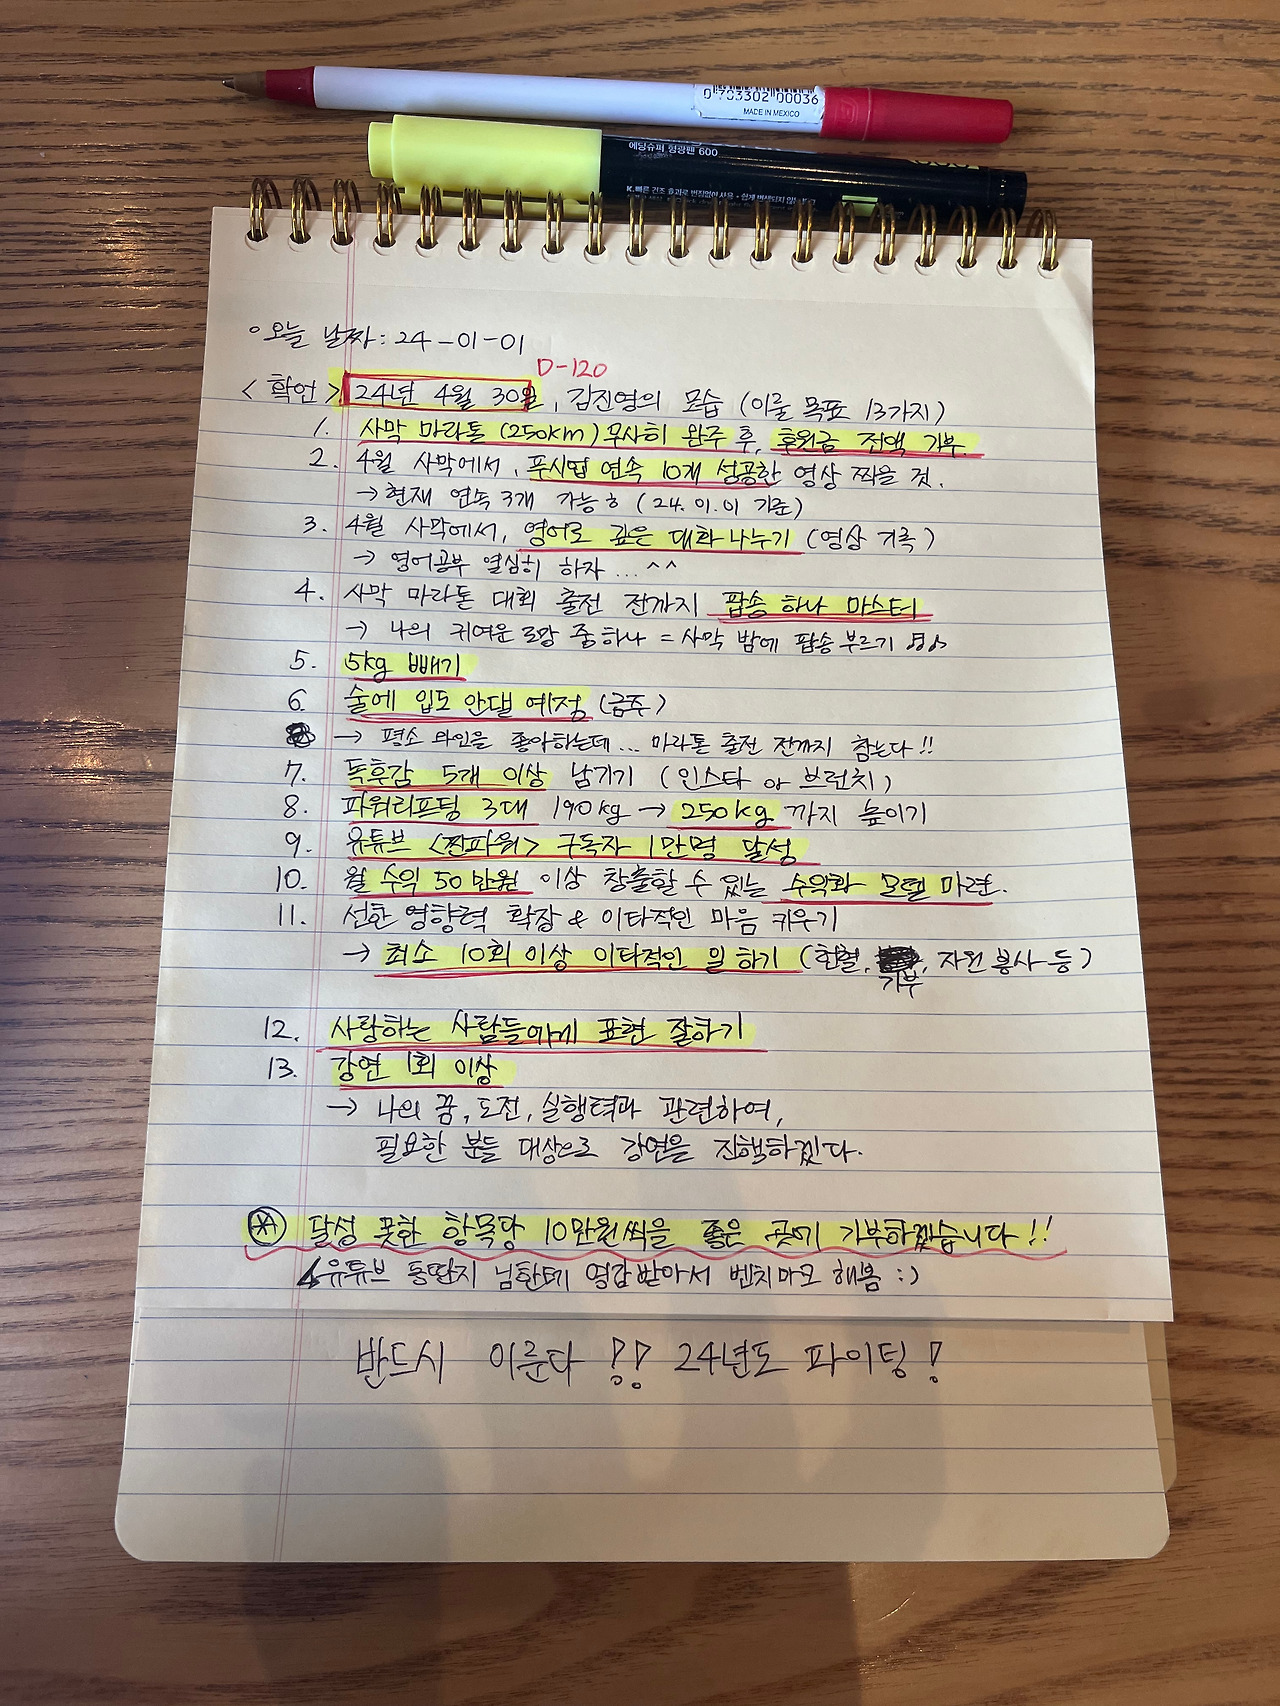 0 703302 00036
MADE IN MEXICO
에딩슈퍼 형광펜 600
K.빠른 건조 효과로 번짐없이 사용 • 쉽게 변색되지 않
◦오늘 날짜: 24-01-01
D-120
<확언> 24년 4월 30일, 김진영의 모습 (이룰 목표 13가지)
1. 사막 마라톤 (250km) 무사히 완주 후, 후원금 전액 기부.
2. 4월 사막에서, 푸시업 연속 10개 성공한 영상 찍을 것.
→ 현재 연속 3개 가능ㅎ (24.01.01 기준)
3. 4월 사막에서, 영어로 깊은 대화 나누기 (영상 기록)
→ 영어공부 열심히 하자...^^
4. 사막 마라톤 대회 출전 전까지 팝송 하나 마스터
→ 나의 귀여운 로망 중 하나 = 사막 밤에 팝송 부르기 ♪♪
5. 5kg 빼기
6. 술에 입도 안댈 예정 (금주)
→ 평소 와인을 좋아하는데... 마라톤 출전 전까지 참는다!!
7. 독후감 5개 이상 남기기 (인스타 or 브런치)
8. 파워리프팅 3대 190kg → 250kg 까지 높이기
9. 유튜브 <찐파워> 구독자 1만명 달성
10. 월 수익 50만원 이상 창출할 수 있는 수익화 모델 마련.
11. 선한 영향력 확장 & 이타적인 마음 키우기
→ 최소 10회 이상 이타적인 일 하기 (헌혈, 기부, 자원봉사 등)
12. 사랑하는 사람들에게 표현 잘하기
13. 강연 1회 이상
→ 나의 꿈, 도전, 실행력과 관련하여,
필요한 분들 대상으로 강연을 진행하겠다.
※ 달성 못한 항목당 10만원씩을 좋은 곳에 기부하겠습니다!!
↳유튜브 돌딴지 님한테 영감받아서 벤치마킹 해봄 :)
반드시 이룬다!! 24년도 파이팅!